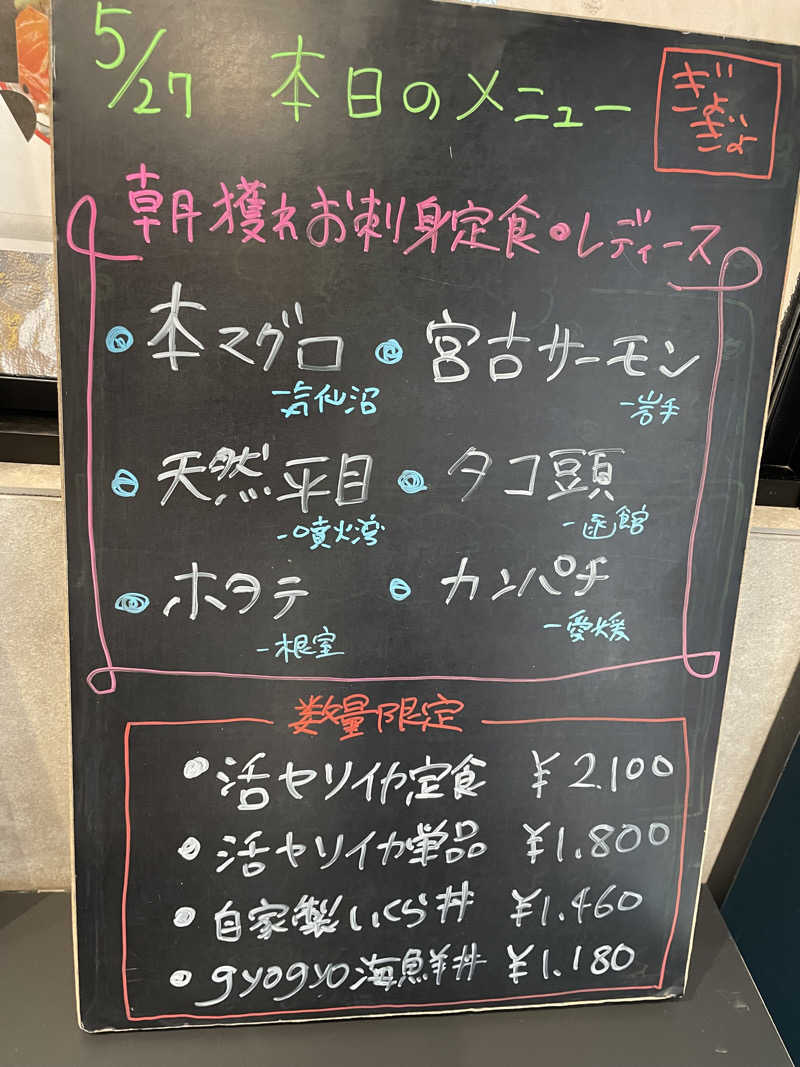 5/27 本日のメニュー
ぎょ
ぎょ
朝獲れお刺身定食・レディース
・本マグロ ・宮古サーモン
-気仙沼 -岩手
・天然平目 ・タコ頭
-噴火湾 -函館
・ホタテ ・カンパチ
-根室 -愛媛
数量限定
・活ヤリイカ定食 ¥2.100
・活ヤリイカ単品 ¥1.800
・自家製いくら丼 ¥1.460
・gyogyo海鮮丼 ¥1.180